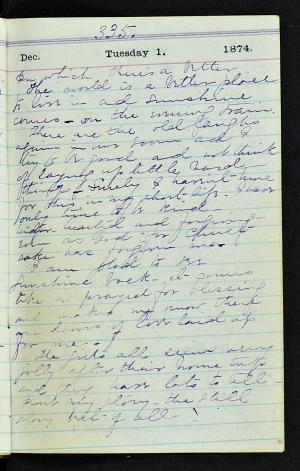 335.
Dec. Tuesday 1. 1874.
The world is a better place
to live in and sunshine
comes - on the
There are the old laughs
again in our room and I
try to be good and not think
of laying up little hard
things. Surely I haven't time
for this in my short life. I have
only time to be kind
hearted and forgiving
even as God for Christ
sake has forgiven me.
I am glad to
sunshine back - it comes
like a prayed for blessing
and makes me know there
are hours of love laid up
for me.
The girls all seem very
jolly after their home trips
and they have lots to tell -
story - the still
story best of all -